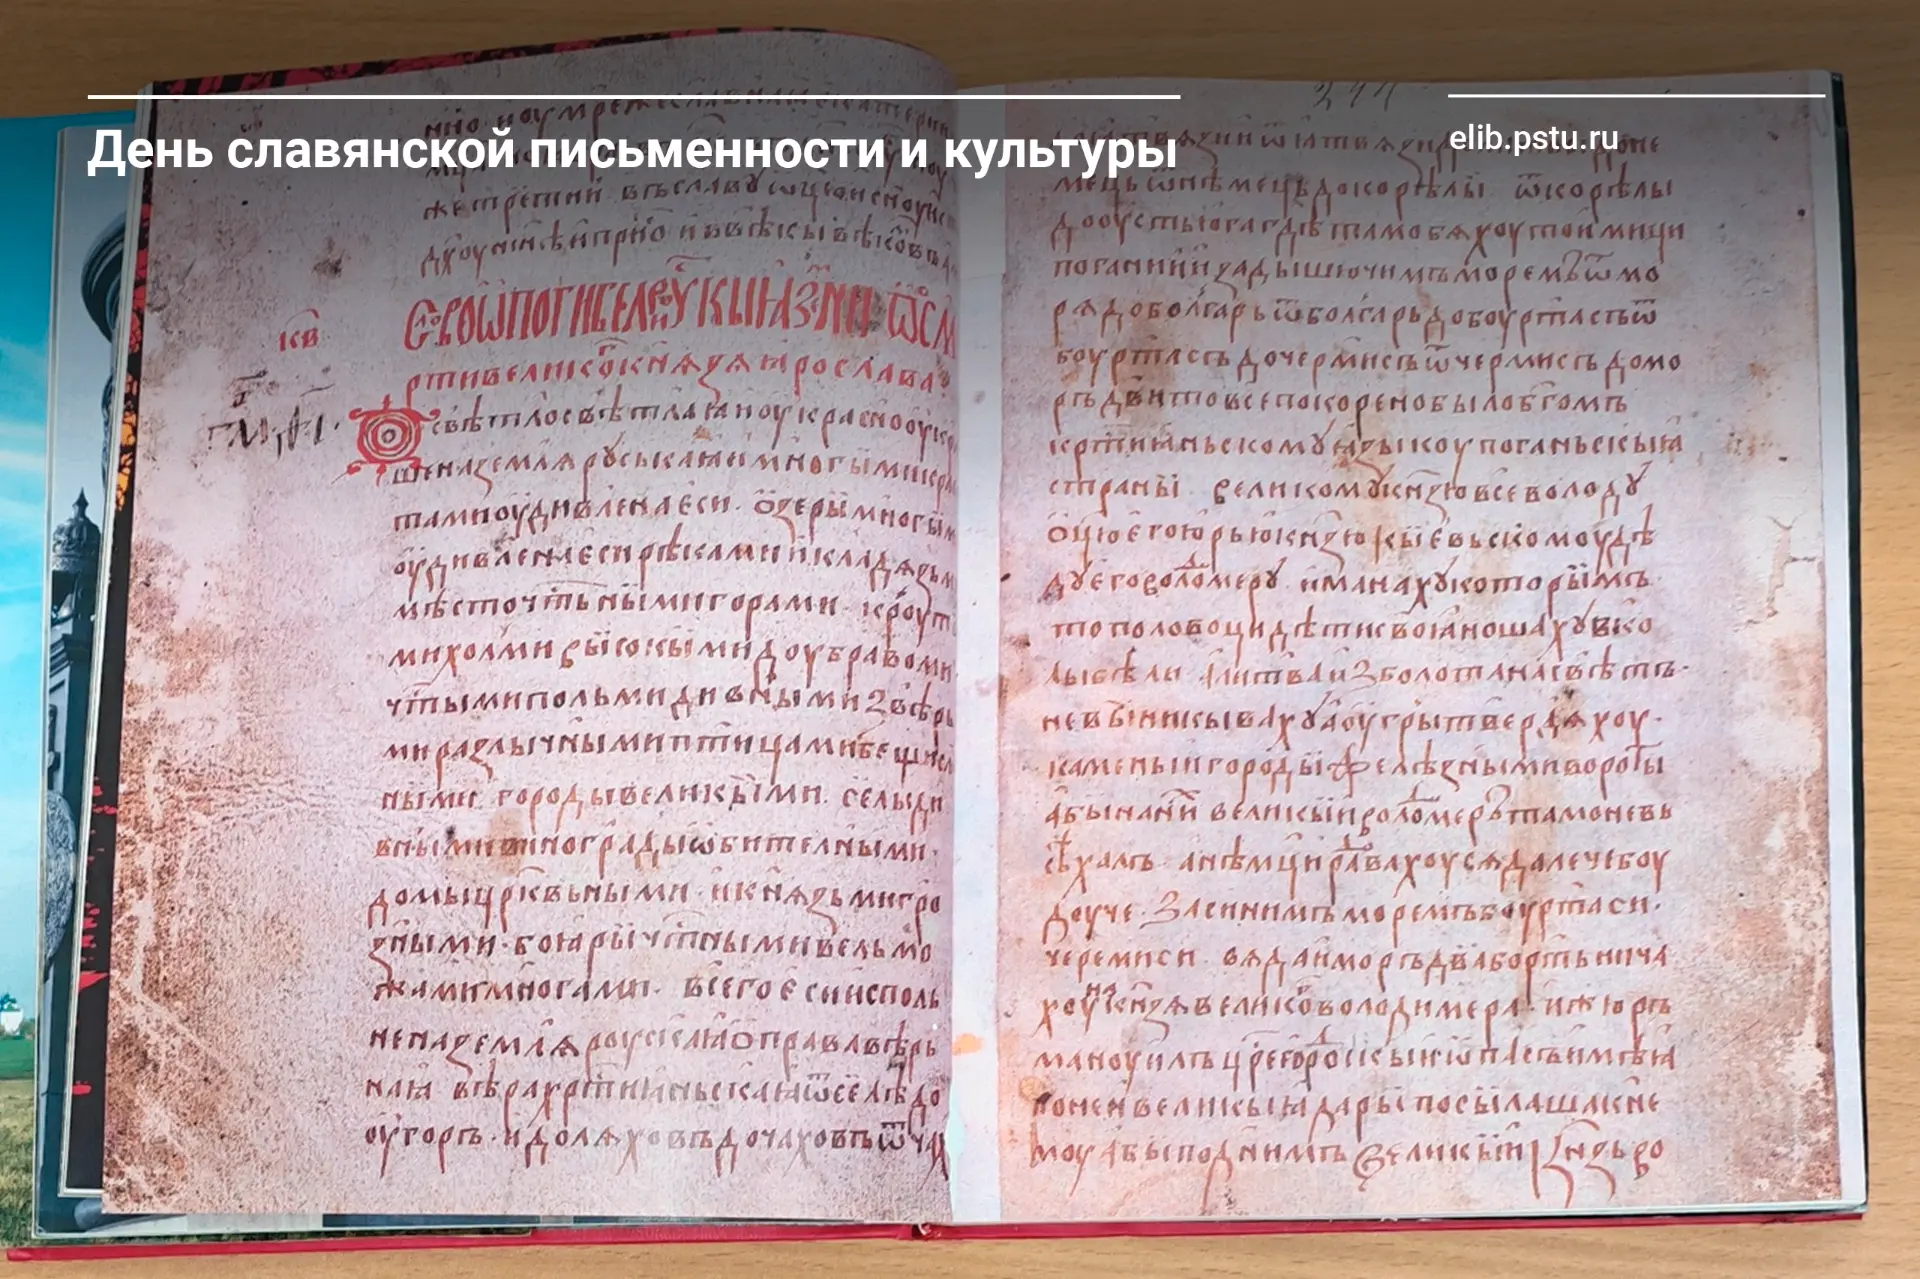 День славянской письменности и культуры
elib.pstu.ru
жетретии въславу ѿцеоисноуис
дх҃оунн҃ѣиприо ивъвѣкывѣко̑въа
кв҃
Слово ѿпогибелирускыꙗземли ѿсм
ртивеликогокнѧзѧꙗрослава
Ѽсвѣтлосвѣтлаꙗиоукрасноукра
шеназемлѧруськаꙗимногымикра
тамиоудивленаеси ѻзерымногым
оудивленаесирѣкамиикладѧзьм
мѣсточтьнымигорами крѹт
михолмивысокымидоубравоми
чт҃ымипольмидивнымизвѣрь
миразлычнымиптицамибещисл
ными городывеликыми селыди
внымивиноградыѡбителными
домыцр҃квьными икнѧзьмигро
знымибоꙗрычтн҃ымивельмо
жамимногами всегоеси исполь
неназемлѧроусскаꙗоправавѣрь
наꙗ вѣрахр҃тиꙗньскаꙗѿселѣдо
оугоръидолѧховъдочаховъѿчах
ꙗтвѧзииѿꙗтвѧзи доне
мець ѿнѣмецьдокорѣлы ѿкорѣлы
дооустьюгагдѣтамобѧхоутоимици
поганиии задышючимъморемъѿмо
рѧдоболгарьѿболгарьдобоуртасъѿ
боуртасъдочермисъѿчермисъдомо
рьдвитовсепокоренобылобг҃омъ
крт҃иꙗньскомуꙗзыкоупоганьскыꙗ
страны великомукнз҃ювсеволоду
ѻц҃юегоюрьюкнз҃юкыевьскомоудѣ
дуеговолодимеру иманахукоторымъ
тополовоцидѣтисвоꙗношахувко
лыбѣли алитваизболотанасвѣтъ
невыникывахуаоугрытвердѧхоу
каменыигородыжелѣзнымивороты
абынаниивеликыиволодимертамоневь
сѣхалъ анѣмцирадвахоусѧдалечебоу
доуче засинимъморемъбоуртаси
черемиси вѧдаиморъдвабортьнича
хоунакнз҃ѧвеликоговолодимера ижюръ
маноуилъцр҃егородскыиѡпасъимѣꙗ
поненвеликыꙗдарыпосылашакне
моуабыподнимъвеликыикнз҃ьво